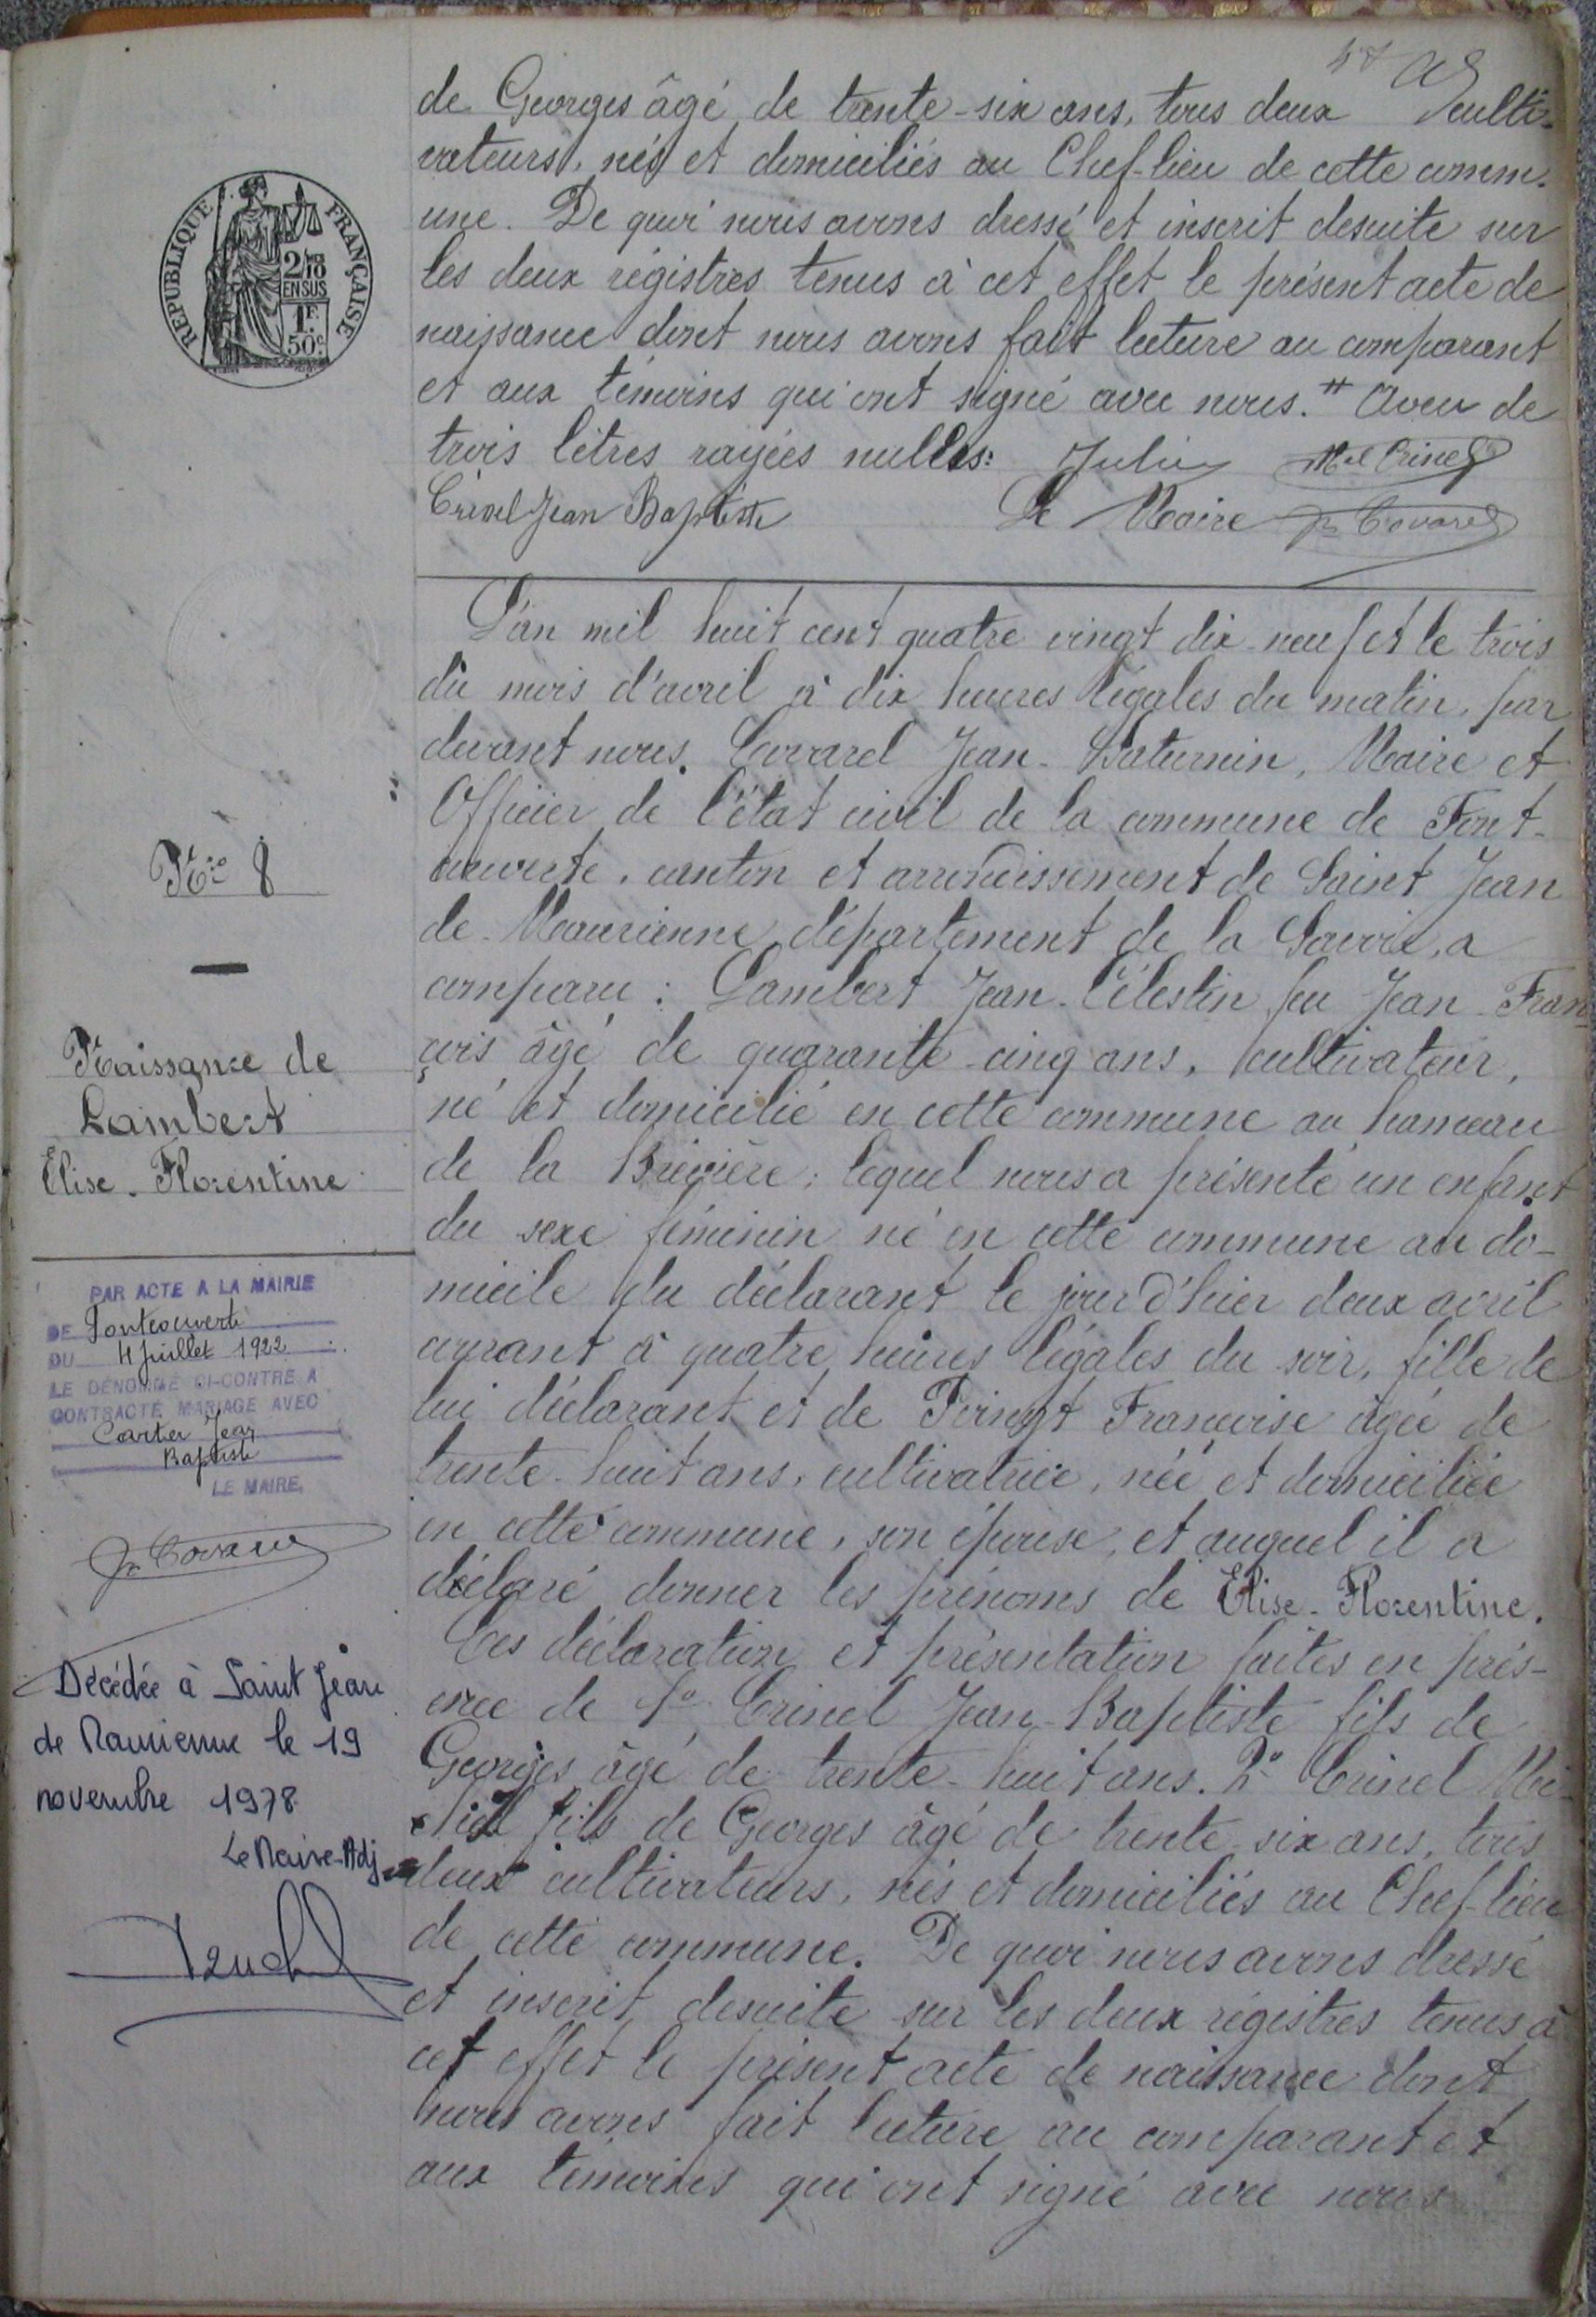 de Georges âgé de trente-six ans, tous deux culti-
vateurs, nés et domiciliés au Chef-lieu de cette comm-
une. De quoi nous avons dressé et inscrit desuite sur
les deux régistres tenus à cet effet le présent acte de
naissance dont nous avons fait lecture au comparant
et aux témoins qui ont signé avec nous. Aveu de
trois lêtres rayées nulles:
Crinel Jean Baptiste Le Maire Covarel
RÉPUBLIQUE FRANÇAISE
2/10
EN SUS
1F
50c
L'an mil huit cent quatre vingt dix-neuf et le trois
du mois d'avril à dix heures légales du matin, par
devant nous. Covarel Jean-Saturnin, Maire et
Officier de l'état civil de la commune de Font-
couverte, canton et arrondissement de Saint Jean
de-Maurienne, département de la Savoie, a
comparu: Lambert Jean-Célestin feu Jean-Fran-
çois âgé de quarante-cinq ans, cultivateur,
né et domicilié en cette commune au hameau
de la Brévière; lequel nous a présenté un enfant
du sexe féminin né en cette commune au do-
micile du déclarant le jour d'hier deux avril
courant à quatre heures légales du soir, fille de
lui déclarant et de Poingt Françoise âgée de
trente-huit ans, cultivatrice, née et domiciliée
en cette commune, son épouse, et auquel il a
déclaré donner les prénoms de Elise-Florentine.
Ces déclaration et présentation faites en prés-
ence de 1° Crinel Jean-Baptiste fils de
Georges âgé de trente-huit ans. 2° Crinel Mi-
chel fils de Georges âgé de trente-six ans, tous
deux cultivateurs, nés et domiciliés au Chef-lieu
de cette commune. De quoi nous avons dressé
et inscrit desuite sur les deux régistres tenus à
cet effet le présent acte de naissance dont
nous avons fait lecture au comparant et
aux témoins qui ont signé avec nous
Nro 8
Naissance de
Lambert
Elise-Florentine
PAR ACTE A LA MAIRIE
DE Fontcouverte
DU 4 juillet 1922
LE DÉNOMMÉ CI-CONTRE A
CONTRACTÉ MARIAGE AVEC
Carter Jean
Baptiste
LE MAIRE,
Covarel
Décédée à Saint Jean
de Maurienne le 19
novembre 1978
Le Maire-Adj